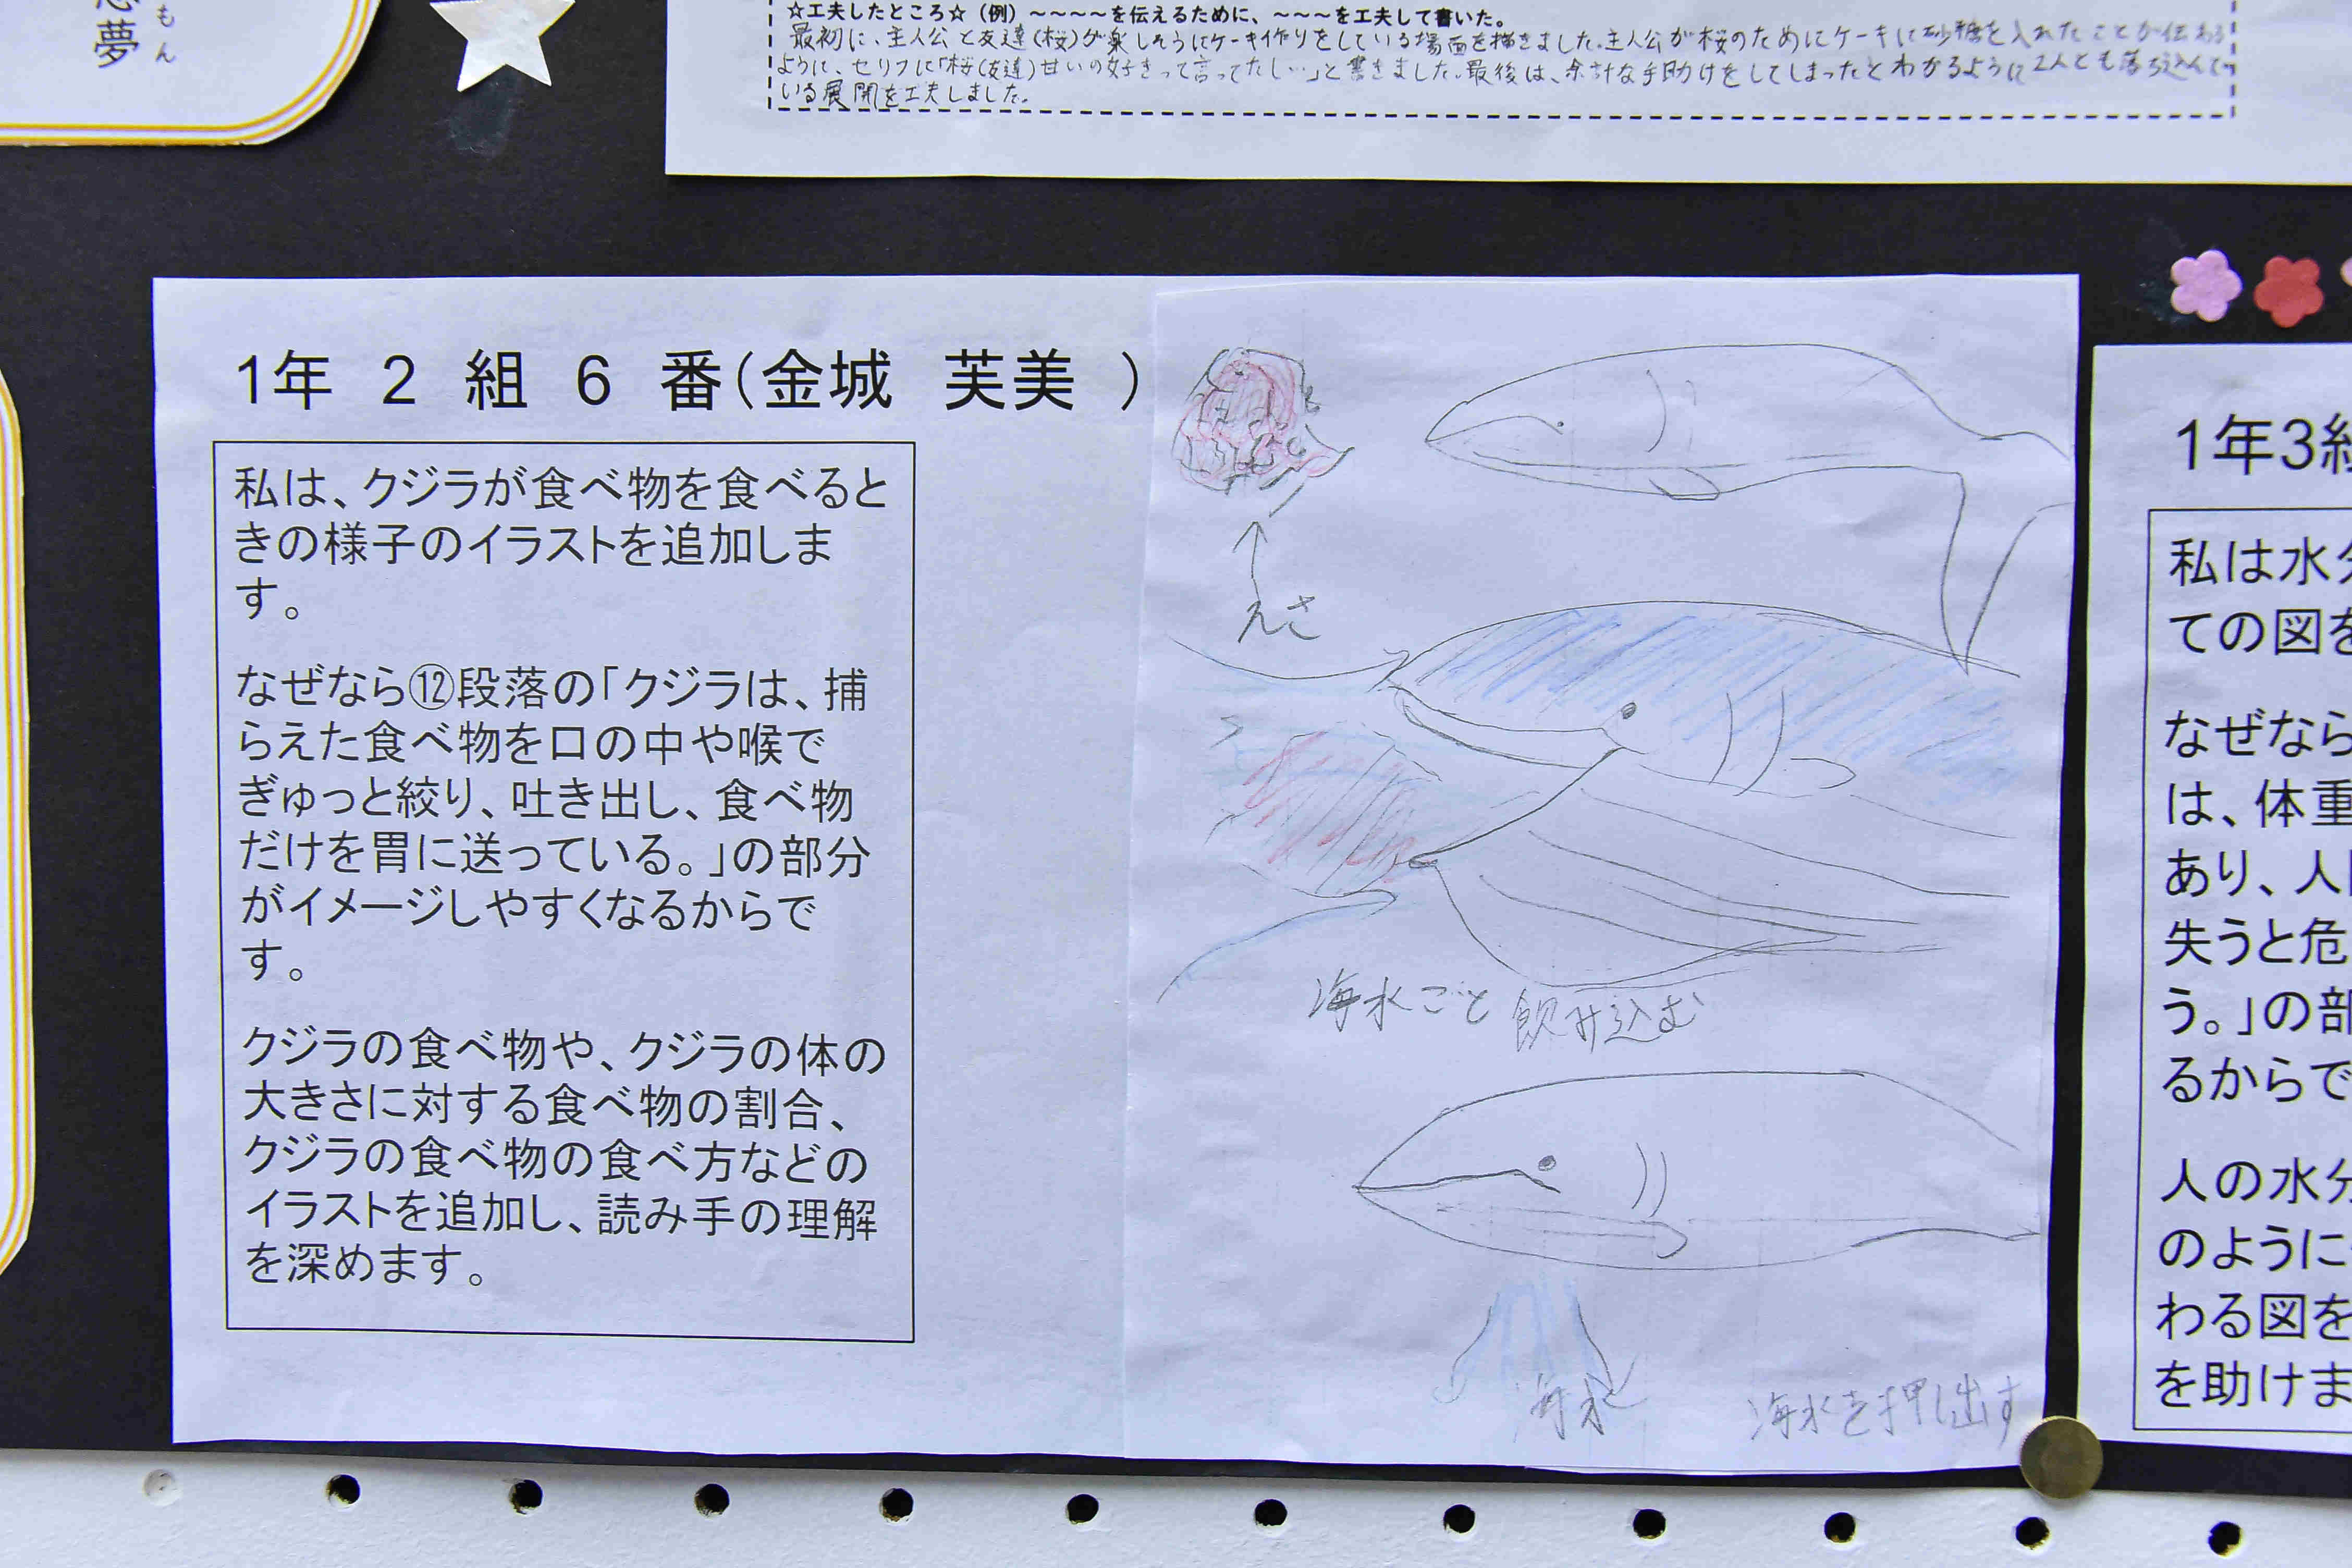 夢
もん
☆工夫したところ☆（例）～～～～を伝えるために、～～～を工夫して書いた。
最初に、主人公と友達(桜)が楽しそうにケーキ作りをしている場面を描きました。主人公が桜のためにケーキに砂糖を入れたことが伝わる
ように、セリフに「桜(友達)甘いの好きって言ってたし…」と書きました。最後は、余計な手助けをしてしまったとわかるように2人とも落ち込んで
いる展開を工夫しました。
1年 2 組 6 番(金城 芙美 )
私は、クジラが食べ物を食べると
きの様子のイラストを追加しま
す。
なぜなら⑫段落の「クジラは、捕
らえた食べ物を口の中や喉で
ぎゅっと絞り、吐き出し、食べ物
だけを胃に送っている。」の部分
がイメージしやすくなるからで
す。
クジラの食べ物や、クジラの体の
大きさに対する食べ物の割合、
クジラの食べ物の食べ方などの
イラストを追加し、読み手の理解
を深めます。
えさ
海水ごと飲み込む
海水
海水を押し出す
1年3組
私は水分
ての図を
なぜなら
は、体重
あり、人
失うと危
う。」の部
るからで
人の水分
のように
わる図を
を助けま